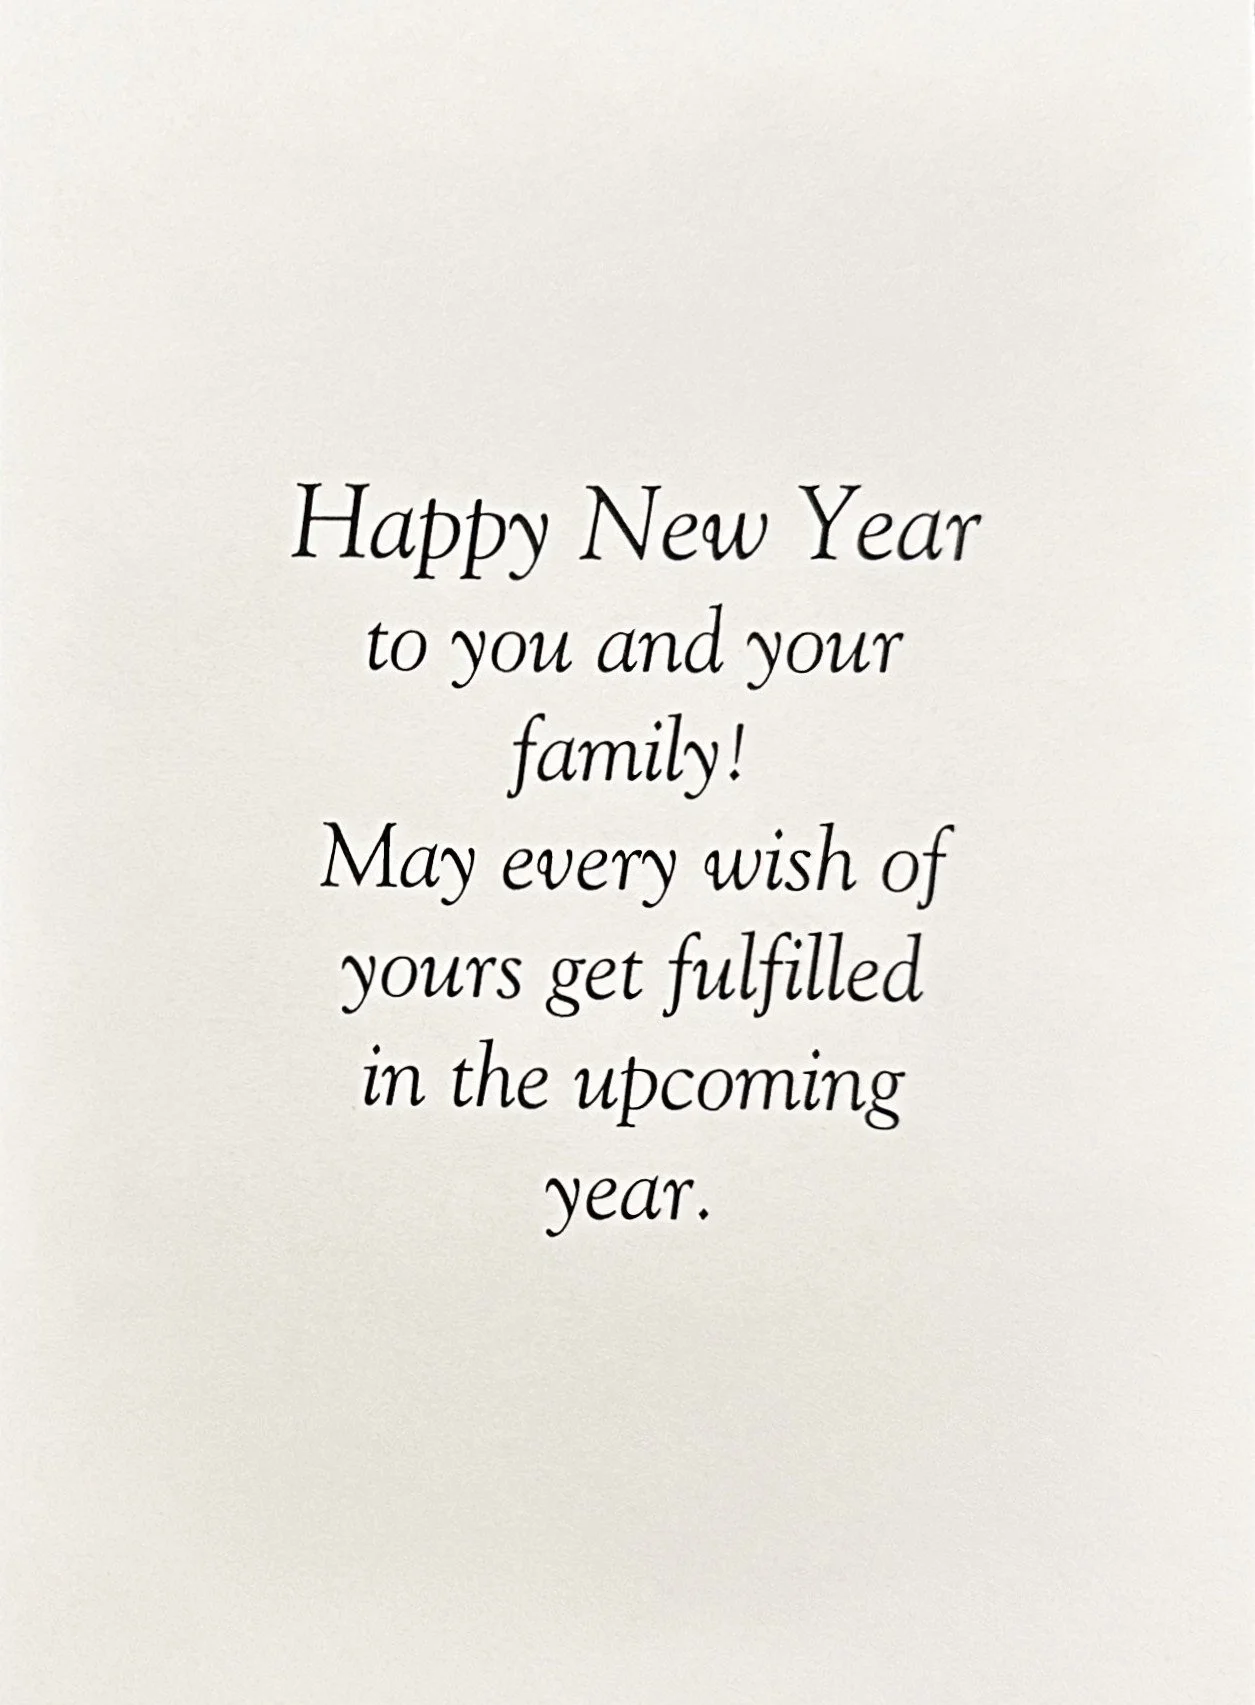 Happy New Year
to you and your
family!
May every wish of
yours get fulfilled
in the upcoming
year.